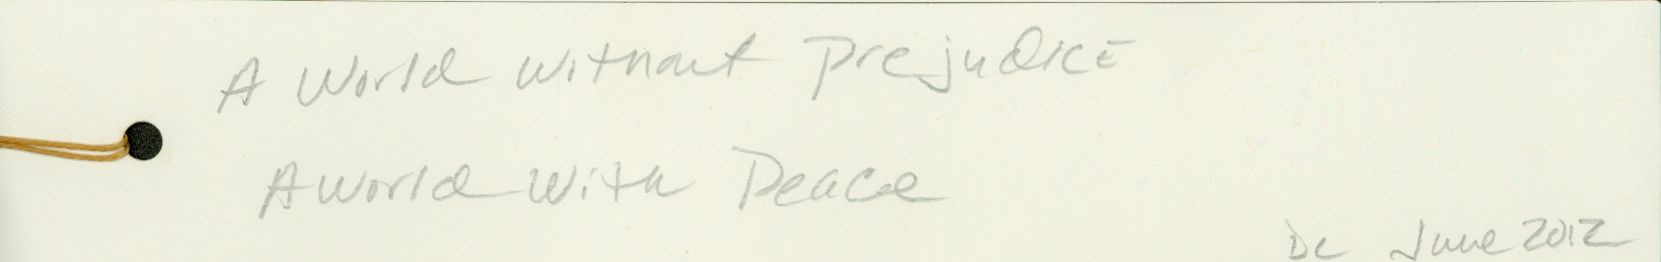 A World Without Prejudice
A World With Peace
DC June 2012